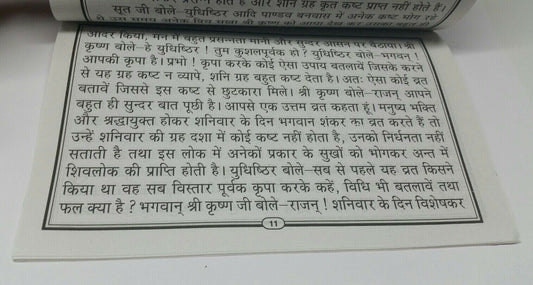 होते हैं और शनि ग्रह कृत कष्ट प्राप्त नहीं होते हैं।
सूत जी बोले-युधिष्ठिर आदि पाण्डव बनवास में अनेक कष्ट भोग रहे
आदर किया, मन में बहुत प्रसन्नता मानी और सुन्दर आसन पर बैठाया। श्री
कृष्ण बोले-हे युधिष्ठिर ! तुम कुशलपूर्वक हो ? युधिष्ठिर बोले-भगवन् !
आपकी कृपा है। प्रभो ! कृपा करके कोई ऐसा उपाय बतलावें जिसके करने
से यह ग्रह कष्ट न व्यापे, शनि ग्रह बहुत कष्ट देता है। अतः ऐसा कोई व्रत
बतावें जिससे इस कष्ट से छुटकारा मिले। श्री कृष्ण बोले-राजन् आपने
बहुत ही सुन्दर बात पूछी है। आपसे एक उत्तम व्रत कहता हूं। मनुष्य भक्ति
और श्रद्धायुक्त होकर शनिवार के दिन भगवान शंकर का व्रत करते हैं तो
उन्हें शनिवार की ग्रह दशा में कोई कष्ट नहीं होता है, उनको निर्धनता नहीं
सताती है तथा इस लोक में अनेकों प्रकार के सुखों को भोगकर अन्त में
शिवलोक की प्राप्ति होती है। युधिष्ठिर बोले-सब से पहले यह व्रत किसने
किया था वह सब विस्तार पूर्वक कृपा करके कहें, विधि भी बतलावें तथा
फल क्या है ? भगवान् श्री कृष्ण जी बोले-राजन् ! शनिवार के दिन विशेषकर
11